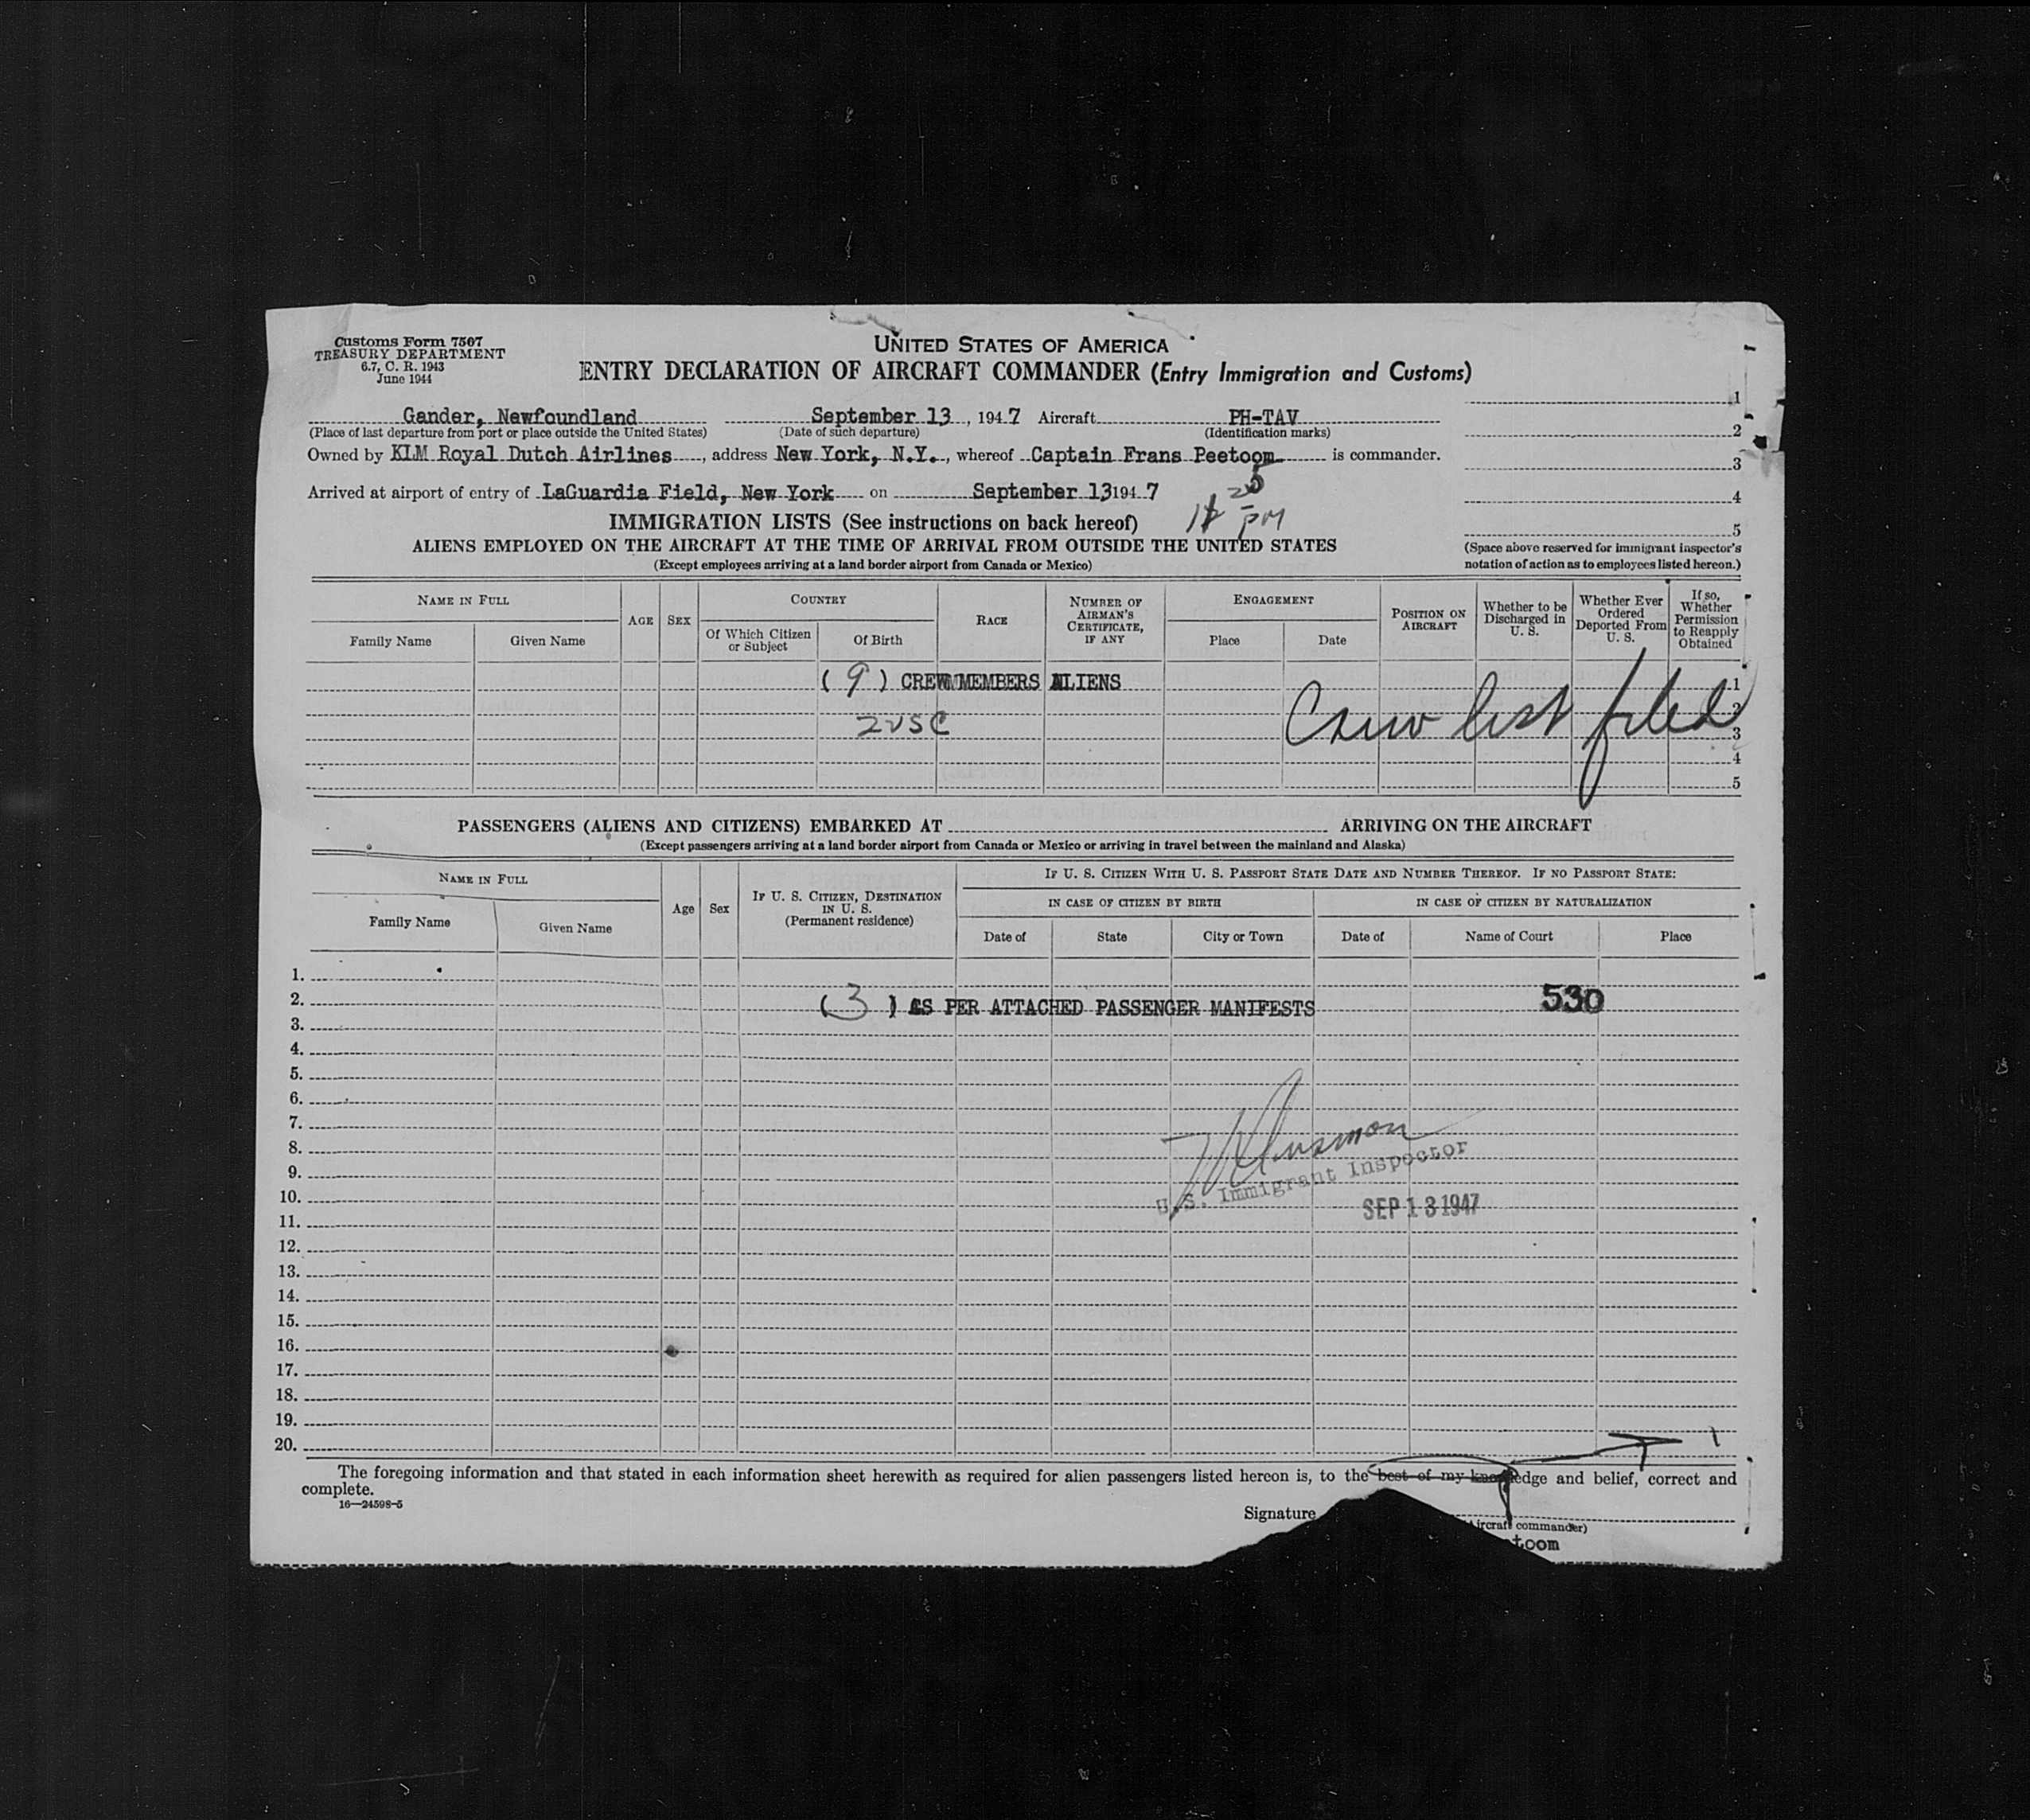 Customs Form 7507
TREASURY DEPARTMENT
6.7, C. R. 1943
June 1944
UNITED STATES OF AMERICA
ENTRY DECLARATION OF AIRCRAFT COMMANDER (Entry Immigration and Customs)
Gander, Newfoundland September 13, 1947 Aircraft PH-TAV
(Place of last departure from port or place outside the United States) (Date of such departure) (Identification marks)
Owned by KLM Royal Dutch Airlines, address New York, N.Y., whereof Captain Frans Peetoom is commander.
Arrived at airport of entry of LaGuardia Field, New York on September 13 1947
PM
1
2
3
4
5
(Space above reserved for immigrant inspector's
notation of action as to employees listed hereon.)
IMMIGRATION LISTS (See instructions on back hereof)
ALIENS EMPLOYED ON THE AIRCRAFT AT THE TIME OF ARRIVAL FROM OUTSIDE THE UNITED STATES
(Except employees arriving at a land border airport from Canada or Mexico)
NAME IN FULL
Family Name
Given Name
AGE
SEX
COUNTRY
Of Which Citizen
or Subject
Of Birth
RACE
NUMBER OF
AIRMAN'S
CERTIFICATE,
IF ANY
ENGAGEMENT
Place
Date
POSITION ON
AIRCRAFT
Whether to be
Discharged in
U. S.
Whether Ever
Ordered
Deported From
U. S.
If so,
Whether
Permission
to Reapply
Obtained
( 9 ) CREW MEMBERS ALIENS 1
2 USC Crew list filed 2
3
4
5
PASSENGERS (ALIENS AND CITIZENS) EMBARKED AT ARRIVING ON THE AIRCRAFT
(Except passengers arriving at a land border airport from Canada or Mexico or arriving in travel between the mainland and Alaska)
NAME IN FULL
Family Name
Given Name
Age
Sex
IF U. S. CITIZEN, DESTINATION
IN U. S.
(Permanent residence)
IF U. S. CITIZEN WITH U. S. PASSPORT STATE DATE AND NUMBER THEREOF. IF NO PASSPORT STATE:
IN CASE OF CITIZEN BY BIRTH
Date of
State
City or Town
IN CASE OF CITIZEN BY NATURALIZATION
Date of
Name of Court
Place
1.
2. ( 3 ) AS PER ATTACHED PASSENGER MANIFESTS 530
3.
4.
5.
6.
7.
8.
9.
U.S. Immigrant Inspector
10.
SEP 13 1947
11.
12.
13.
14.
15.
16.
17.
18.
19.
20.
The foregoing information and that stated in each information sheet herewith as required for alien passengers listed hereon is, to the best of my knowledge and belief, correct and
complete.
16—24598-5
Signature
Aircraft commander)
toom